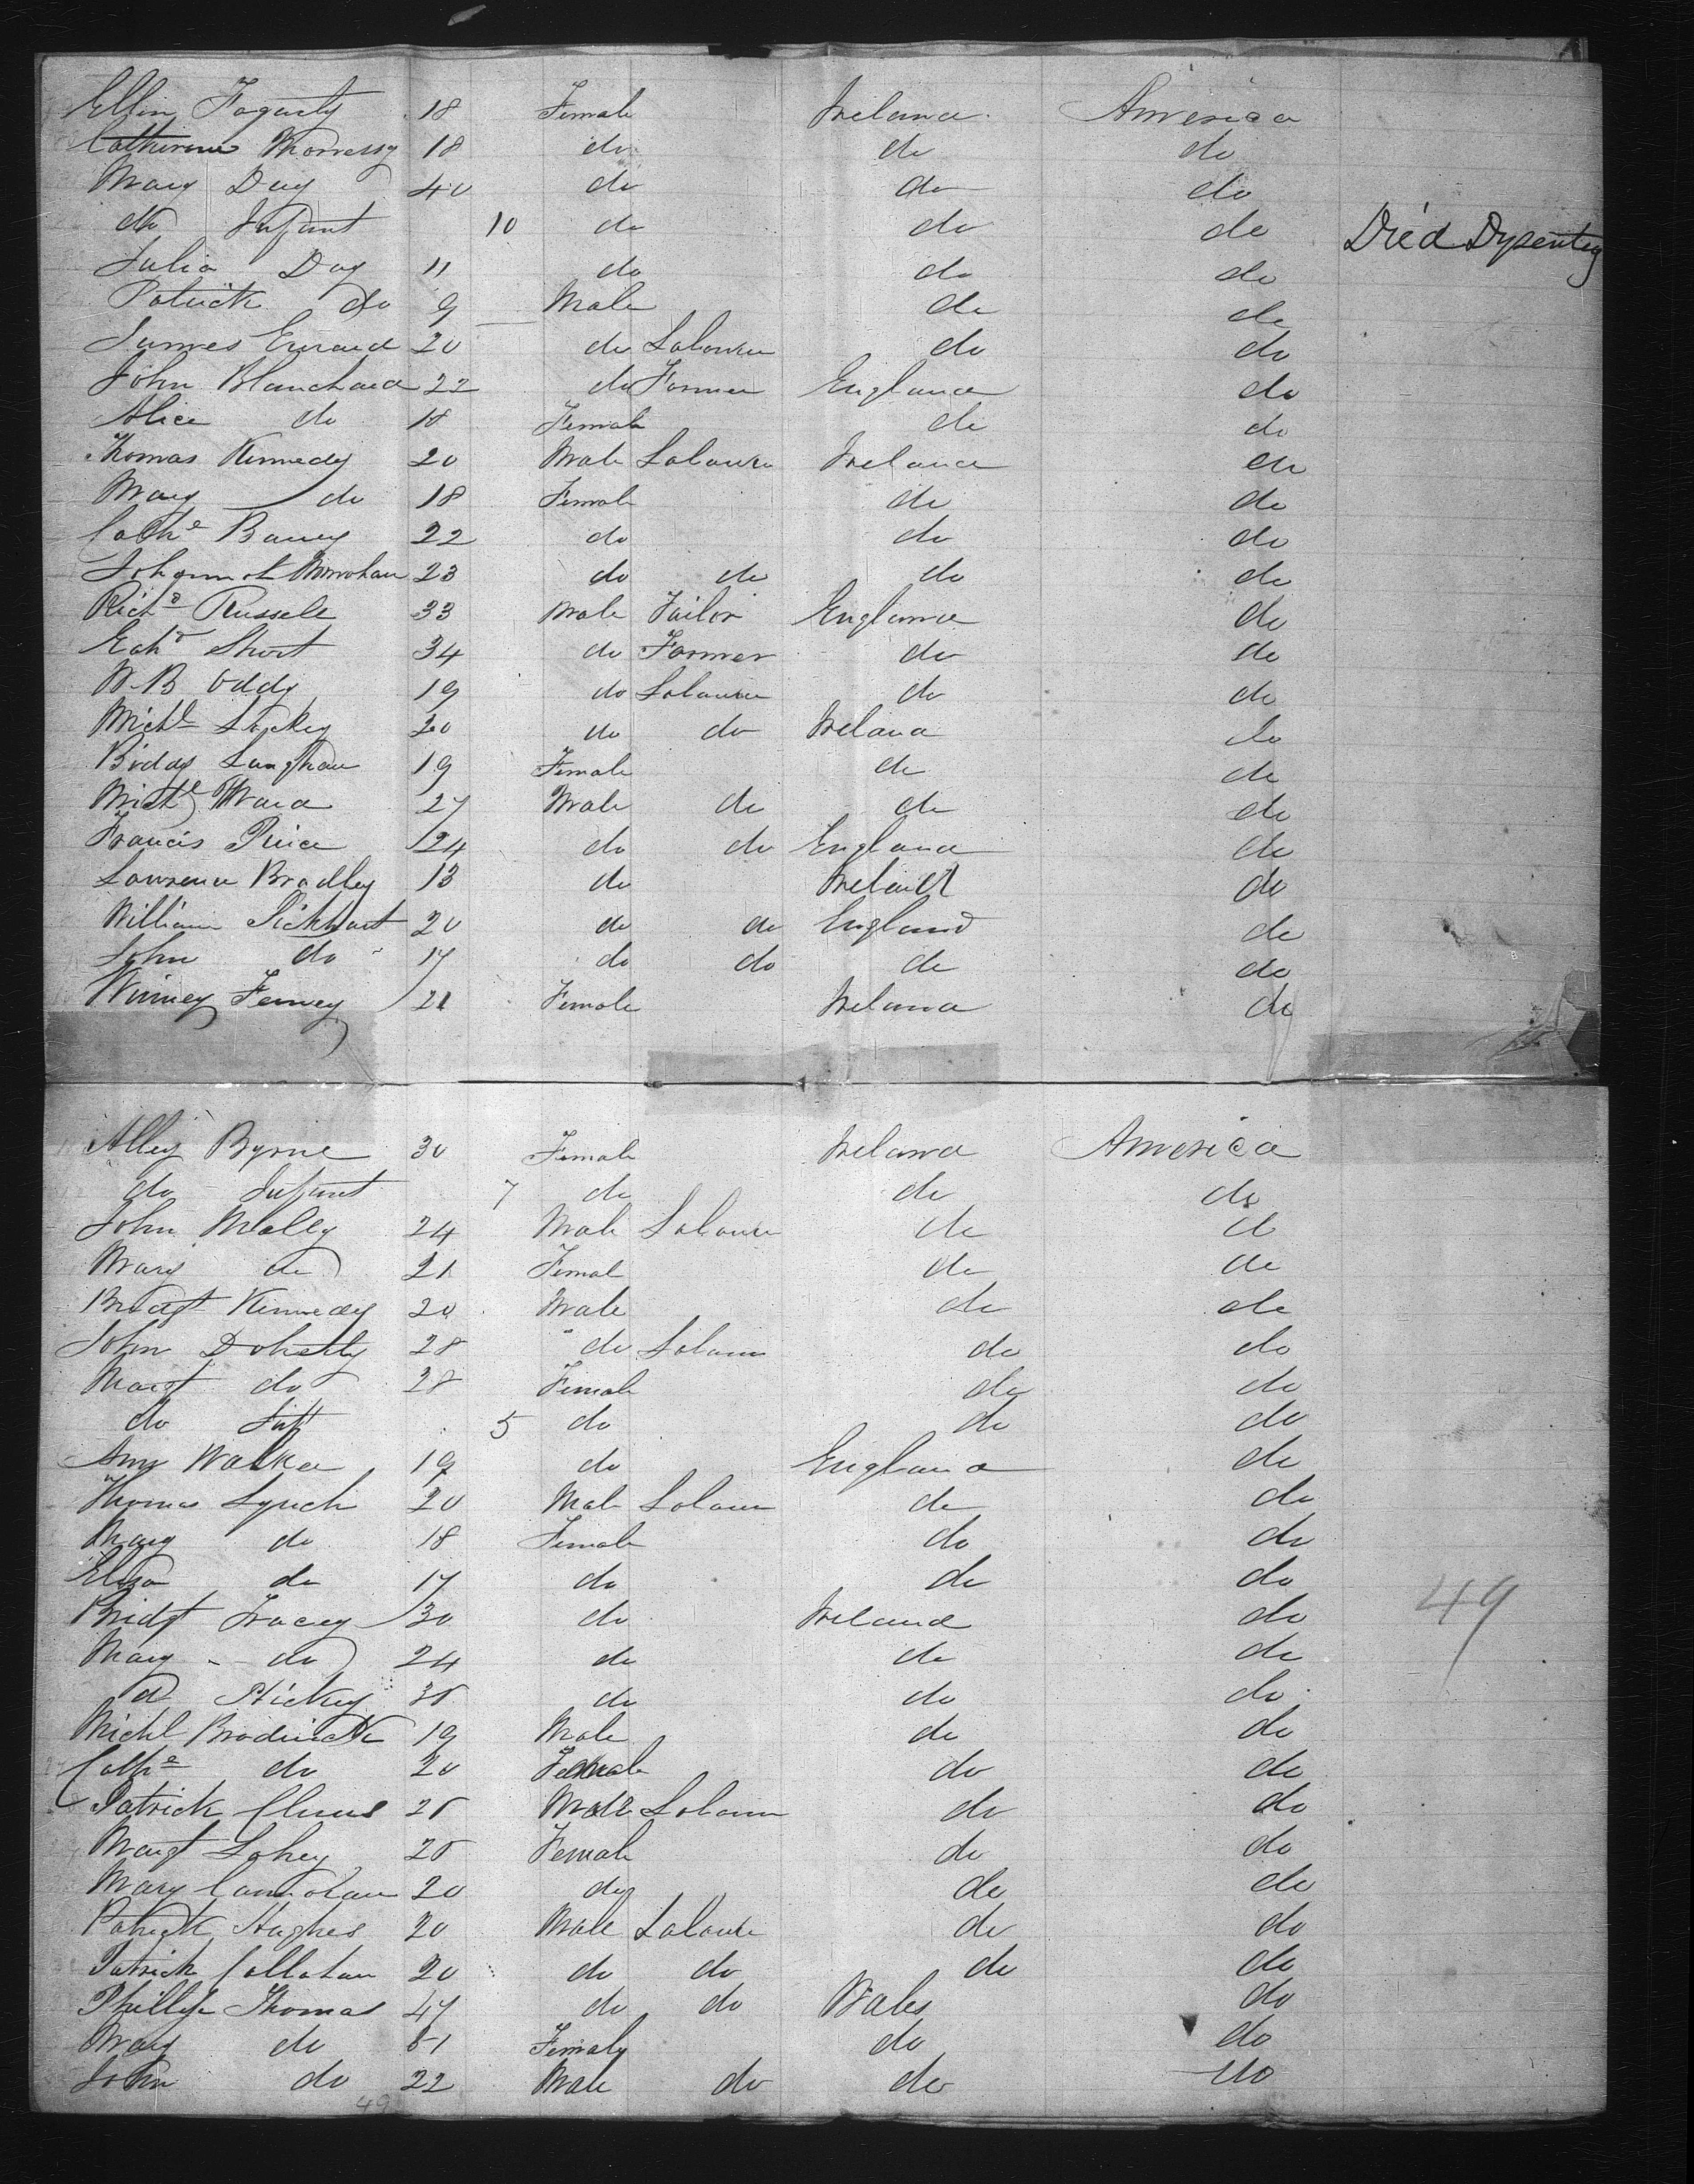 Ellin Fogarty 18 Female Ireland America
Catherine 18 do do do
Mary Day 40 do do do
do Infant 10 do do do Died Dysentey
Julia Day 11 do do do
Patrick do 9 Male do do
James 20 do Labourer do do
John Blanchard 22 do Farmer England do
Alice do 18 Female do do
Thomas Kennedy 20 Male Labourer Ireland do
Mary do 18 Female do do
Cathe 22 do do do
23 do do do do
Richd Russele 33 Male Tailor England do
Short 34 do Farmer do do
W B Oddy 19 do Labourer do do
Michl 20 do do Ireland do
Biddy Langhan 19 Female do do
Michl Ward 27 Male do do do
Francis Price 24 do do England do
Lawrence Bradley 13 do Ireland do
William Pickhart 20 do do England do
John do 17 do do do do
Winney Feeney 21 Female Ireland do
Alley Byrne 30 Female Ireland America
do Infant 7 do do do
John Mally 24 Male Labourer do do
Mary do 21 Femal do do
Bridgt Kennedy 20 Male do do
John Doherty 28 do Labourer do do
Margt do 28 Female do do
do Inft 5 do do do
Ann Walker 19 do England do
Thomas Lynch 20 Male Labourer do do
Mary do 18 Female do do
Eliza do 17 do do do
Bridgt Tracey 30 do Ireland do
49
Mary do 24 do do do
Hickey do do do
Michl Brodrick 19 Male do do
Cathe do 20 Female do do
Patrick Male Labourer do do
Margt Lahey Female do do
Mary 20 do do do
Patrick Hughes 20 Male Labourer do do
Patrick Callahan 20 do do do do
Phillip Thomas 47 do do Wales do
Mary do 51 Female do do
John do 22 Male do do do
49